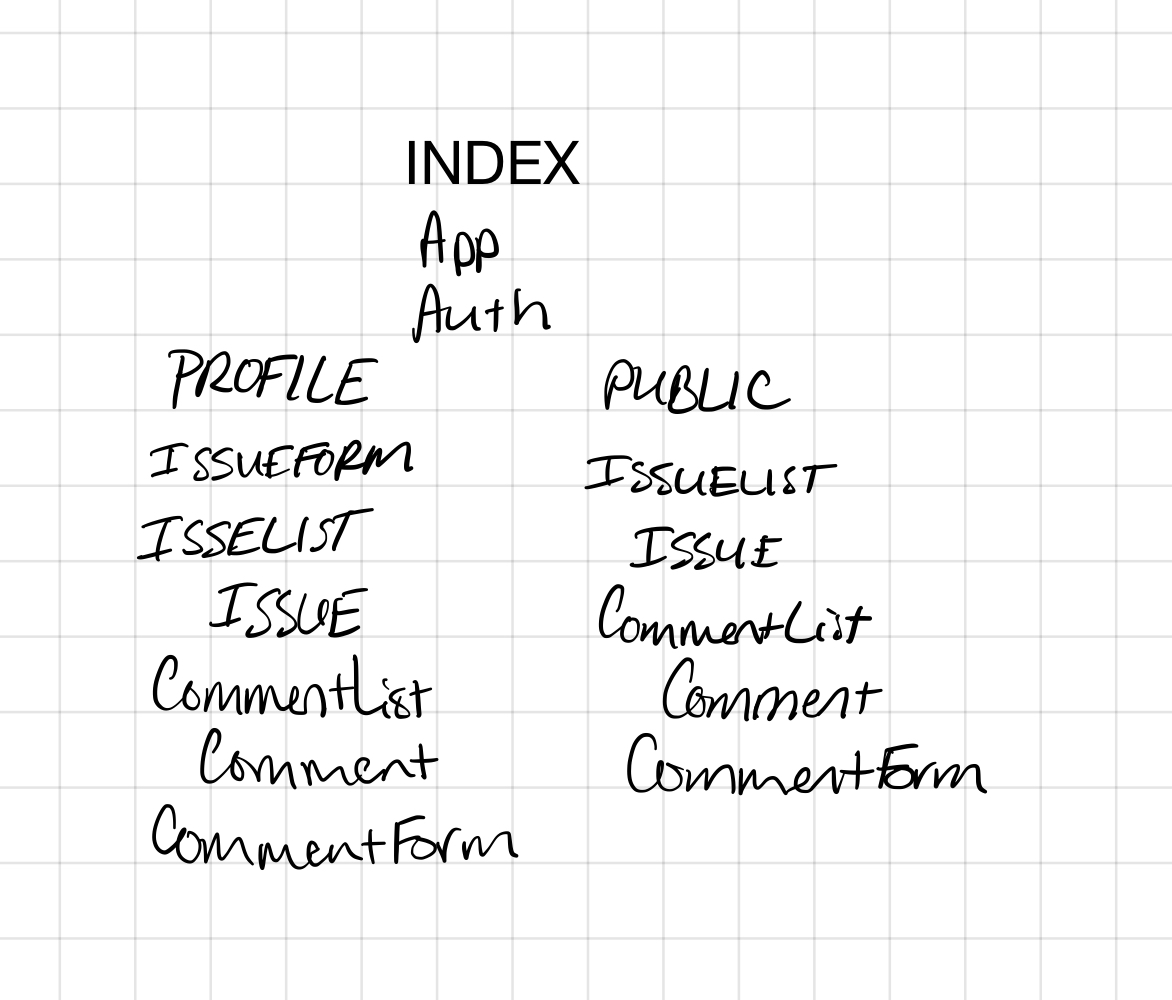 INDEX
App
Auth
PROFILE
ISSUEFORM
ISSELIST
ISSUE
CommentList
Comment
CommentForm
PUBLIC
ISSUELIST
ISSUE
CommentList
Comment
CommentForm